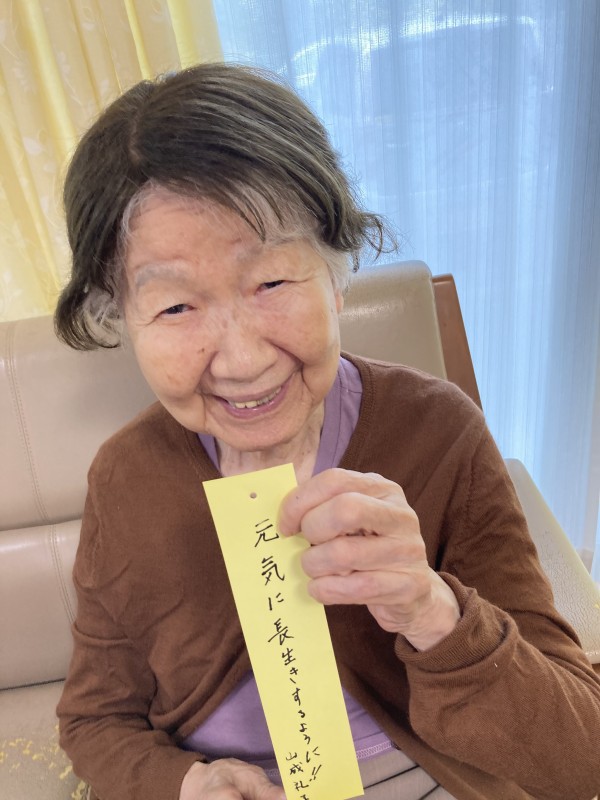 元気に長生きするように!!
山成礼